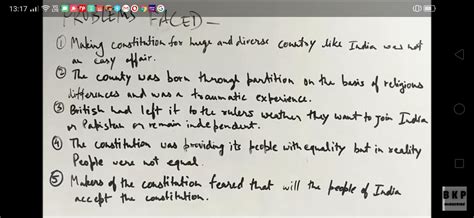 13:17
PROBLEMS FACED —
① Making constitution for huge and diverse country like India was not
an easy affair.
② The county was born through partition on the basis of religious
differences and was a traumatic experience.
③ British had left it to the rulers weather they want to join India
or Pakistan or remain independent.
④ The constitution was providing its people with equality but in reality
People were not equal.
⑤ Makers of the constitution feared that will the people of India
accept the constitution.
BKP